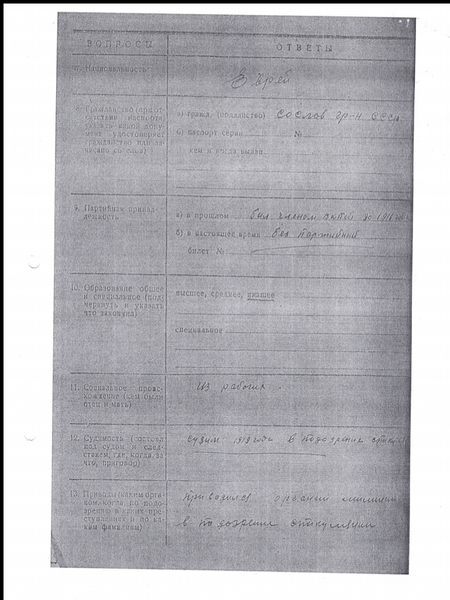 ВОПРОСЫ
ОТВЕТЫ
7. Национальность
Еврей
8. Гражданство (при отсутствии паспорта, указать какой документ удостоверяет гражданство или записано со слов)
а) гражд. (подданство) со слов гр-н СССР
б) паспорт серии №
кем и когда выдан
9. Партийная принадлежность
а) в прошлом был членом до
б) в настоящее время без партийный
билет №
10. Образование общее и специальное (подчеркнуть и указать что закончил)
высшее, среднее, низшее
специальное
11. Социальное происхождение (кем были отец и мать)
Из рабочих
12. Судимость (состоял под судом и следствием, где, когда, за что, приговор)
судим года в подозрении
13. Приводы (каким органом, когда, по подозрению в каких преступлениях и по каким фамилиям)
Приводился органами милиции
в подозрении спекуляции